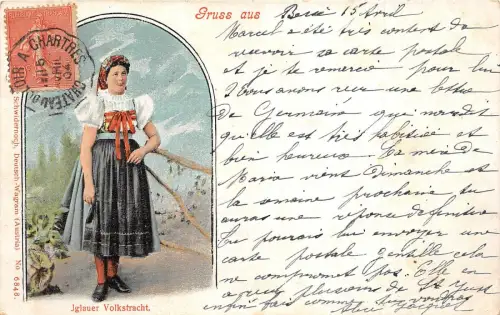 Gruss aus
15 Avril
Marcel a été très content de
recevoir sa carte postale
et je te remercie pour lui
nous avons reçu une lettre
de Germaine qui nous dit
qu'elle est très habituée et
bien heureuse. La mère de
Maria vient Dimanche et
la semaine prochaine tu
auras une réponse définitive
Tu pourrais lui envoyer une
carte postale gentille cela
ne compromet pas. Elle en
a reçu plusieurs de St Just
fais comme tu voudras
CHARTRES
Schwidernoch, Deutsch-Wagram (Austria) No 6848.
Jglauer Volkstracht.